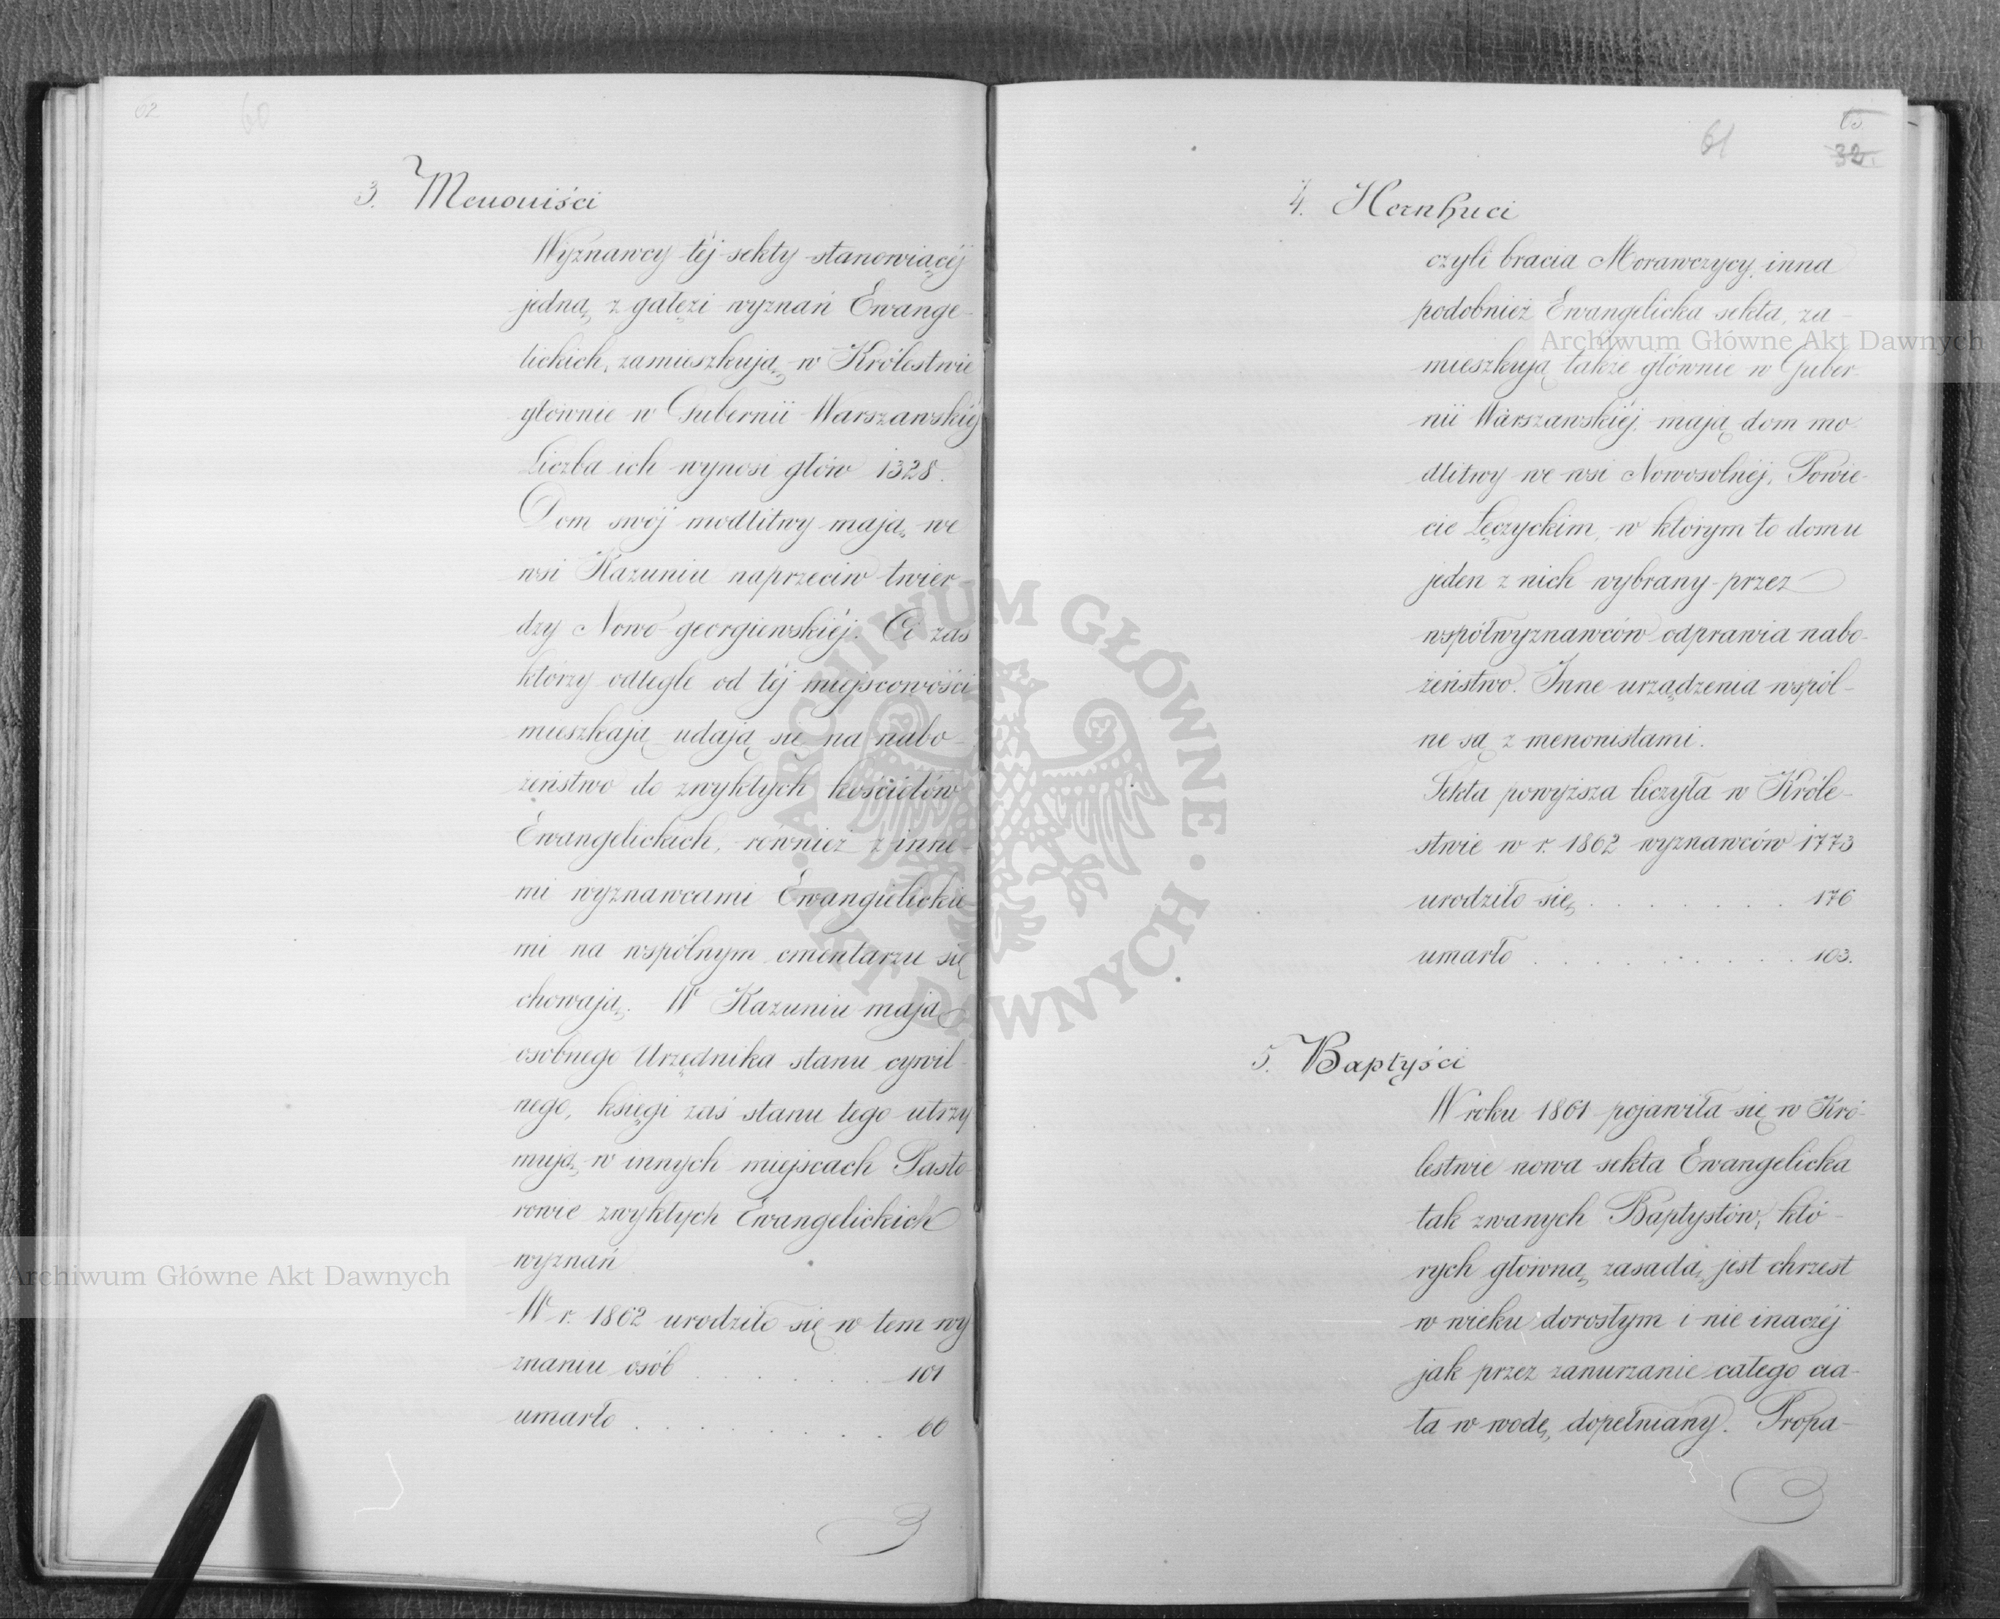 62
60
3. Menoniści
Wyznawcy téj sekty stanowiącéj
jedną z gałęzi wyznań Ewange-
lickich, zamieszkują w Królestwie
głównie w Gubernii Warszawskiéj
Liczba ich wynosi głów 1328.
Dom swój modlitwy mają we
wsi Kazuniu naprzeciw twier-
dzy Nowo-georgiewskiéj. Ci zaś
którzy odlegle od téj miejscowości
mieszkają udają się na nabo-
żeństwo do zwykłych kościołów
Ewangelickich, również z inne-
mi wyznawcami Ewangielickie-
mi na wspólnym cmentarzu się
chowają. W Kazuniu mają
osobnego Urzędnika stanu cywil-
nego, księgi zaś stanu tego utrzy
mują w innych miejscach Pasto
rowie zwykłych Ewangelickich
wyznań
W r. 1862 urodziło się w tem wy
znaniu osób . . . . . . 101
umarło . . . . . . . . . 60
61
63
32.
4. Hernhuci
czyli bracia Morawczycy, inna
podobnież Ewangelicka sekta, za-
mieszkują także głównie w Guber-
nii Warszawskiéj, mają dom mo
dlitwy we wsi Nowosolnéj, Powie-
cie Łęczyckim, w którym to domu
jeden z nich wybrany przez
współwyznawców odprawia nabo-
żeństwo. Inne urządzenia wspól-
ne są z menonistami.
Sekta powyższa liczyła w Króle-
stwie w r. 1862 wyznawców 1773
urodziło się . . . . . . . . 176
umarło . . . . . . . . . . 103.
5. Baptyści
W roku 1861 pojawiła się w Kró-
lestwie nowa sekta Ewangelicka
tak zwanych Baptystów, któ-
rych główną zasadą jest chrzest
w wieku dorosłym i nie inaczéj
jak przez zanurzanie całego cia-
ła w wodę dopełniany. Propa-
Archiwum Główne Akt Dawnych
Archiwum Główne Akt Dawnych
ARCHIWUM GŁÓWNE · AKT DAWNYCH ·